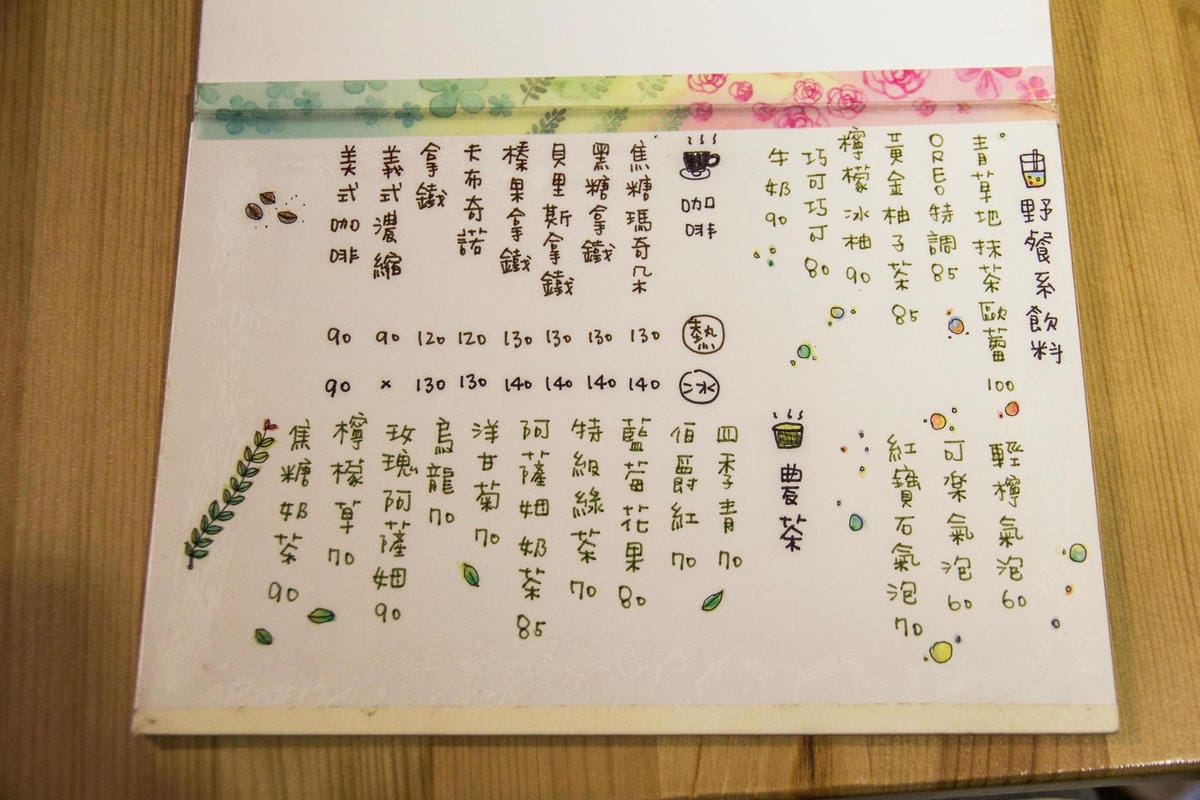 野餐系飲料
青草地抹茶歐蕾 100
OREO特調 85
黃金柚子茶 85
檸檬冰柚 90
巧可巧可 80
牛奶 90
輕檸氣泡 60
可樂氣泡 60
紅寶石氣泡 70
咖啡 熱 冰
焦糖瑪奇朵 130 140
黑糖拿鐵 130 140
貝里斯拿鐵 130 140
榛果拿鐵 130 140
卡布奇諾 120 130
拿鐵 120 130
義式濃縮 90 x
美式咖啡 90 90
茶
四季青 70
伯爵紅 70
藍莓花果 80
特級綠茶 70
阿薩姆奶茶 85
洋甘菊 70
烏龍 70
玫瑰阿薩姆 90
檸檬草 70
焦糖奶茶 90